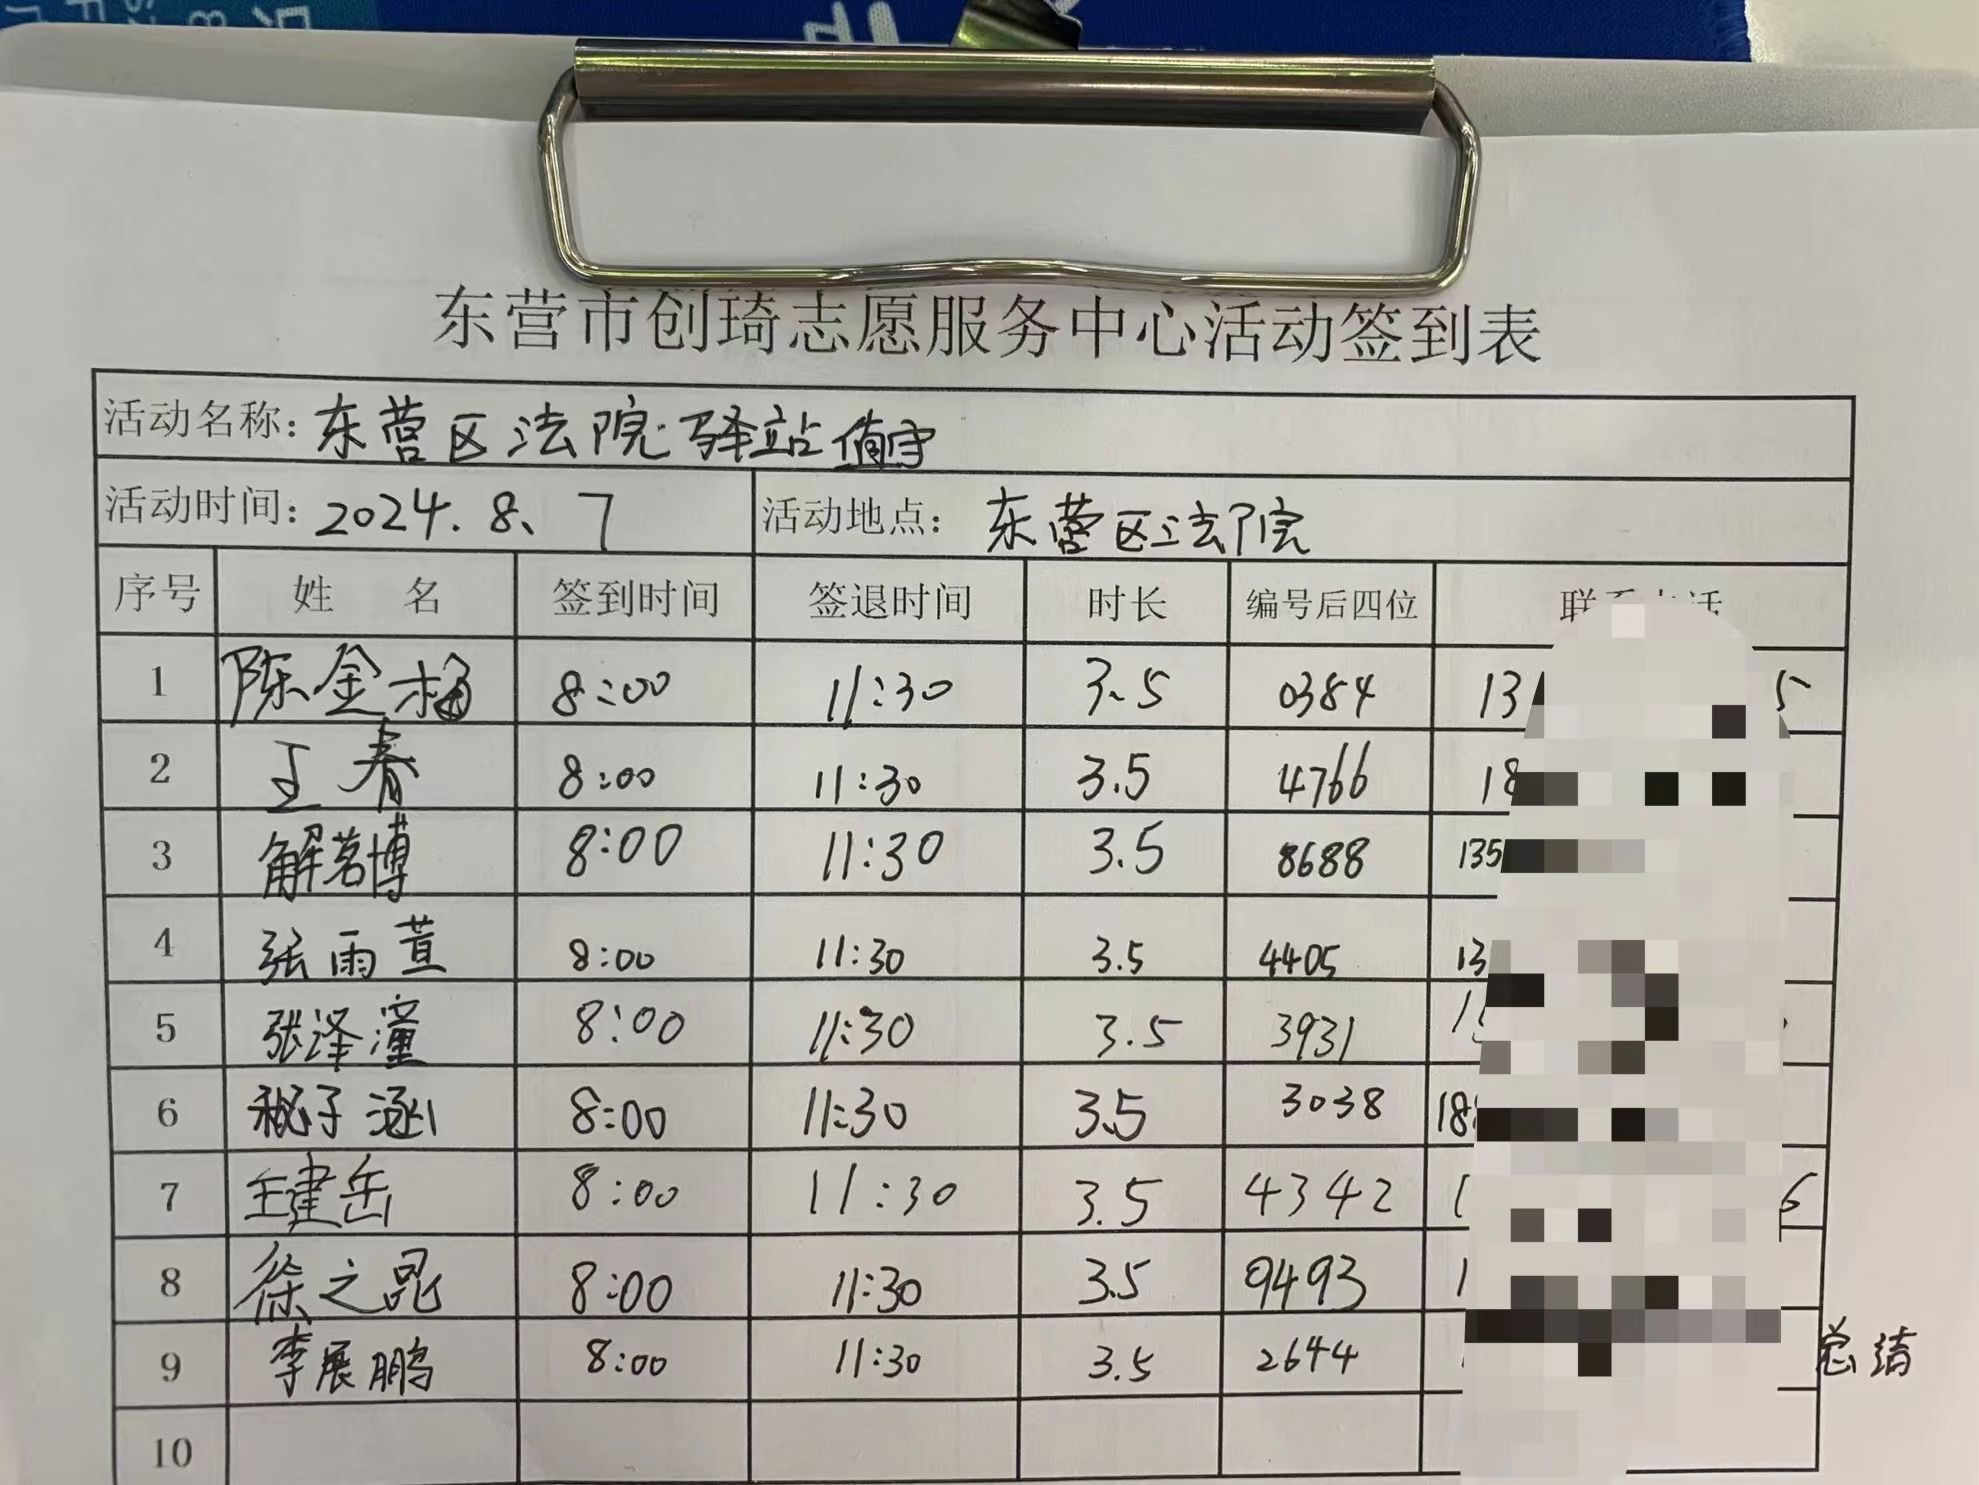 东营市创琦志愿服务中心活动签到表
活动名称：东营区法院驿站值守
活动时间：2024.8.7 活动地点：东营区法院
序号 姓 名 签到时间 签退时间 时长 编号后四位 联系电话
1 陈金梅 8:00 11:30 3.5 0384 13 5
2 王春 8:00 11:30 3.5 4766 18
3 解茗博 8:00 11:30 3.5 8688 135
4 张雨萱 8:00 11:30 3.5 4405 13
5 张泽潼 8:00 11:30 3.5 3931 15
6 秘子涵 8:00 11:30 3.5 3038 18
7 王建岳 8:00 11:30 3.5 4342 1 6
8 徐之昆 8:00 11:30 3.5 9493 1
9 李展鹏 8:00 11:30 3.5 2644 总结
10